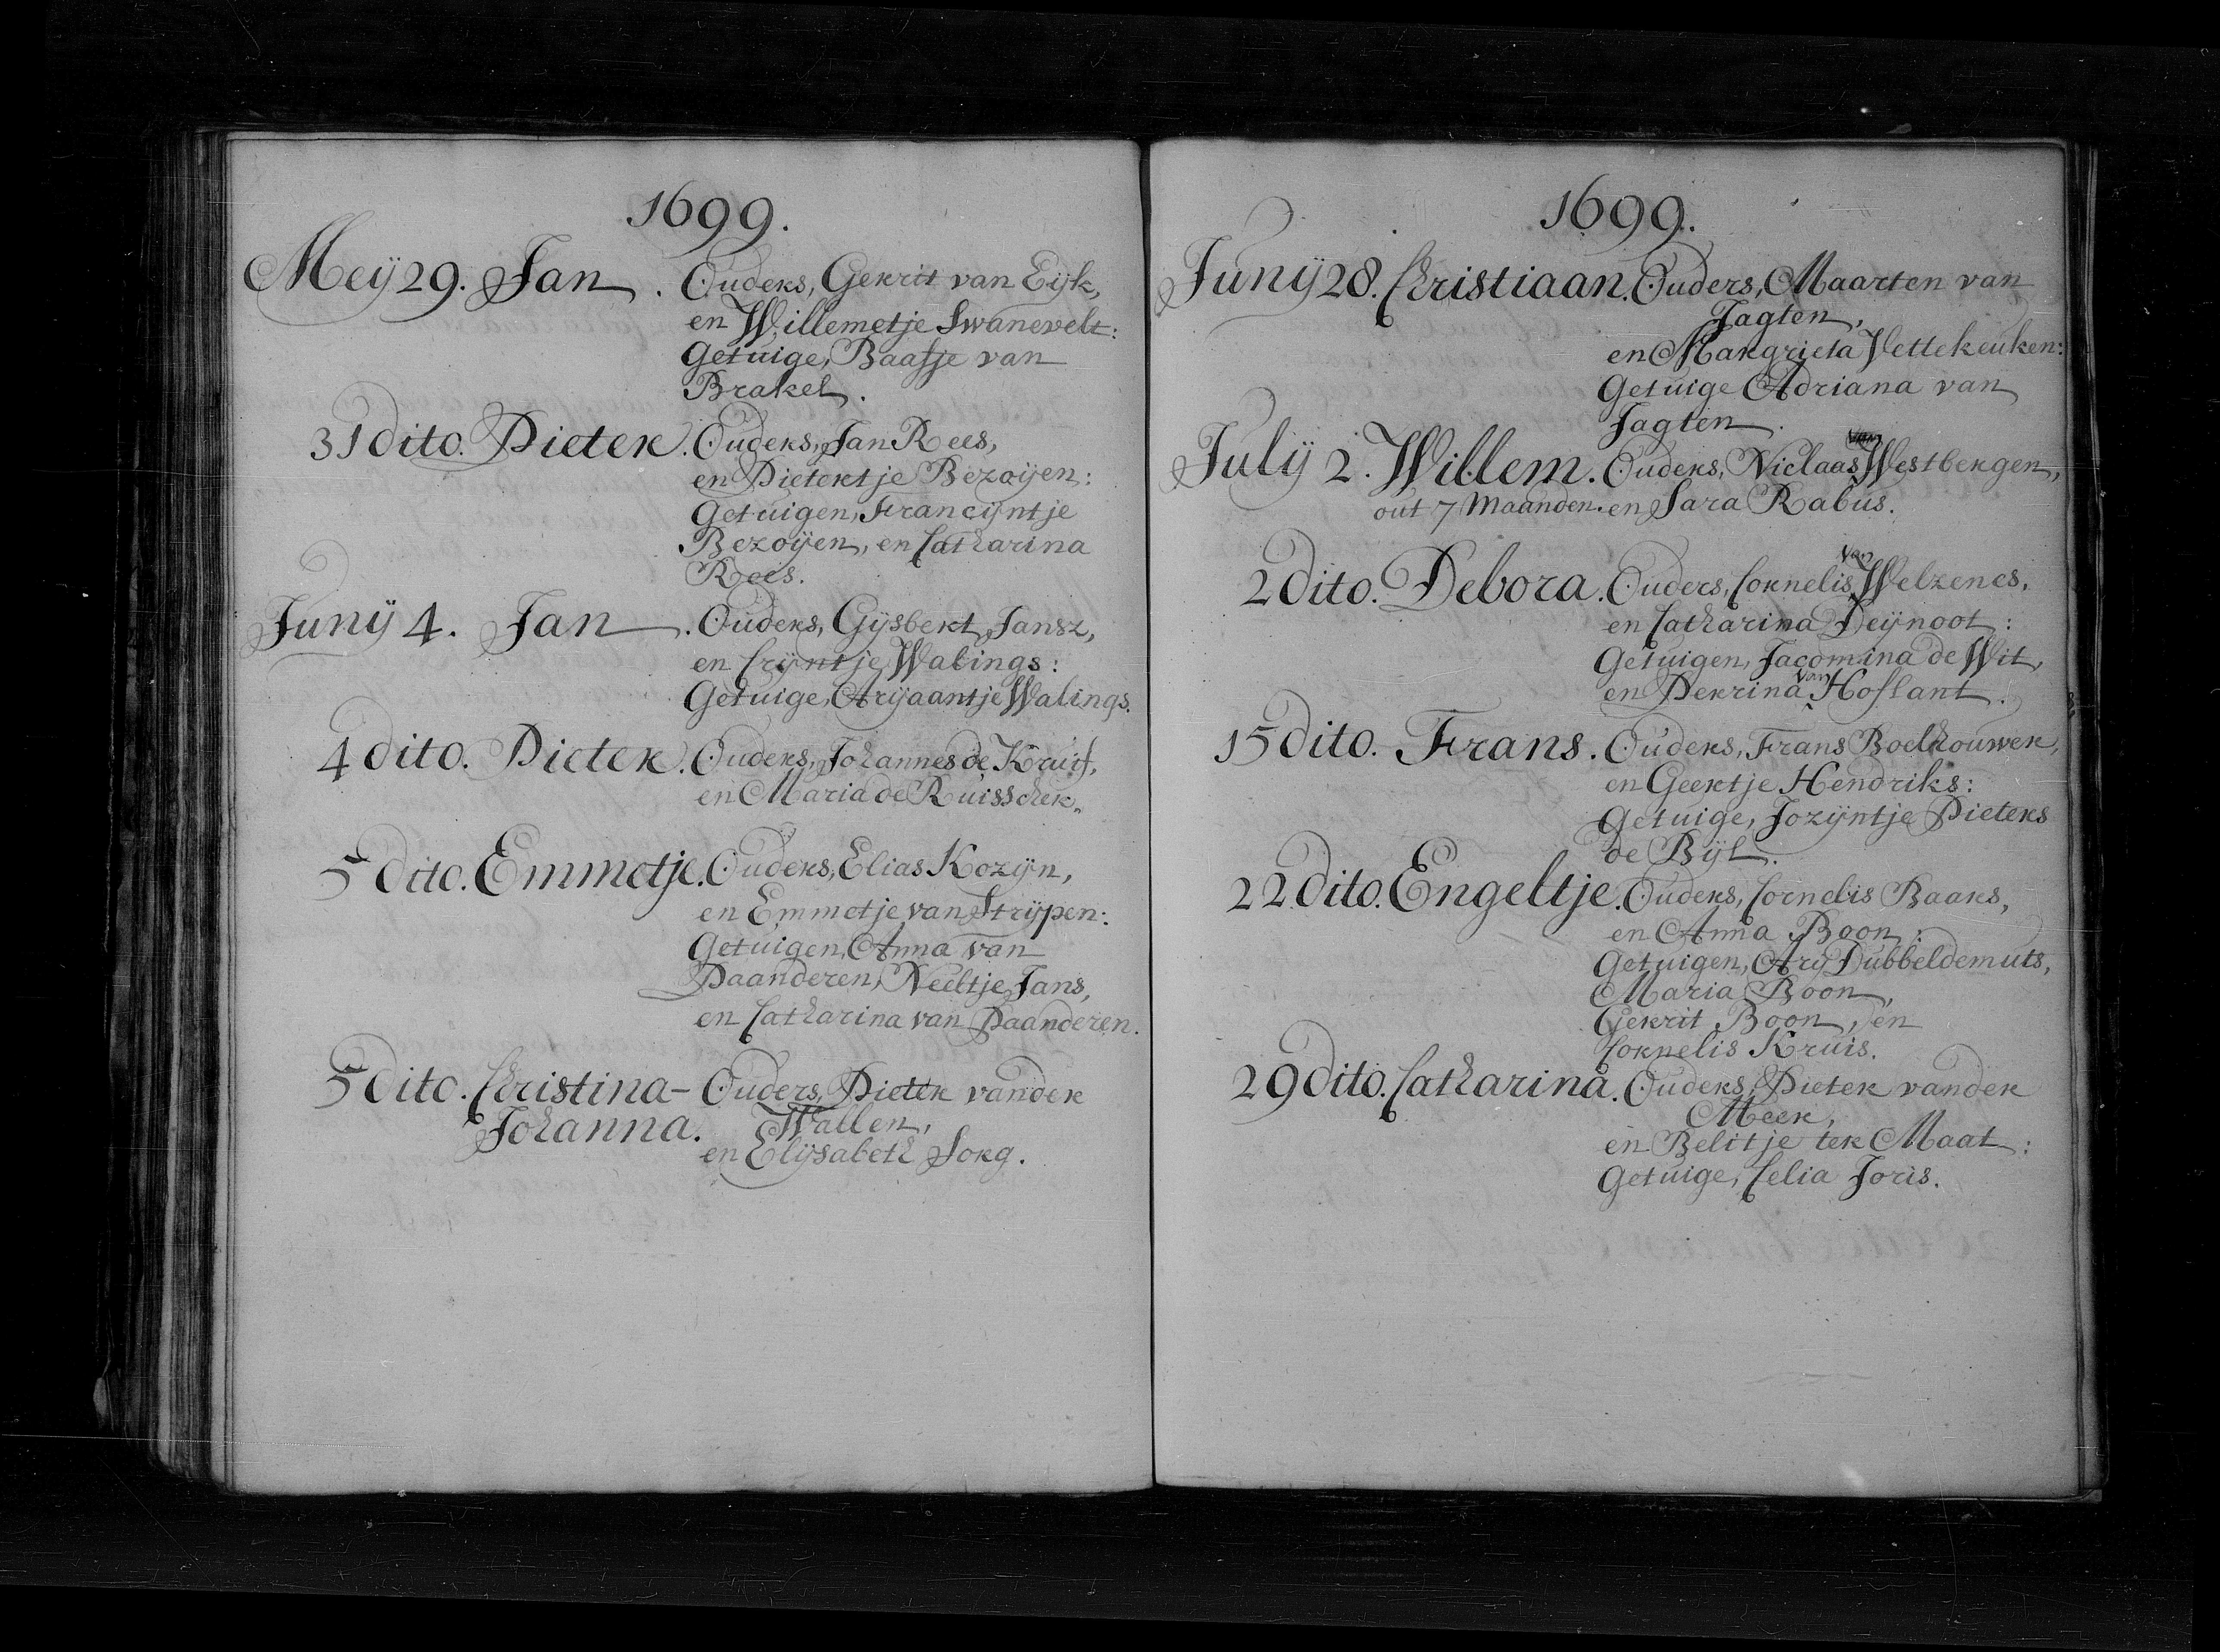 1699.
Meÿ 29. Jan. Ouders, Gerrit van Eijk,
en Willemetje Swanevelt:
Getuige, Baasje van
Brakel.
31 dito. Pieter. Ouders, Jan Rees,
en Pietertje Bezoijen:
Getuigen, Francijntje
Bezoijen, en Catharina
Rees.
Junÿ 4. Jan. Ouders, Gijsbert Jansz,
en Crijntje Walings:
Getuige, Arijaantje Walings.
4 dito. Pieter. Ouders, Johannes de Kruif,
en Maria de Ruisscher.
5 dito. Emmetje. Ouders, Elias Kozijn,
en Emmetje van Strijpen:
Getuigen, Anna van
Paanderen, Neeltje Jans,
en Catharina van Paanderen.
5 dito. Christina- Ouders, Pieter vander
Johanna. Wallen,
en Elijsabeth Sorg.
1699.
Junÿ 28. Christiaan. Ouders, Maarten van
Jagten,
en Margrieta Vettekeuken:
Getuige Adriana van
Jagten.
Julÿ 2. Willem. Ouders, Niclaas van Westbergen,
out 7 Maanden. en Sara Rabus.
2 dito. Debora. Ouders, Cornelis van Welzenes,
en Catharina Deijnoot:
Getuigen, Jacomina de Wit,
en Perrina van Hoflant.
15 dito. Frans. Ouders, Frans Boelhouwer,
en Geertje Hendriks:
Getuige, Jozijntje Pieters
de Bijl.
22 dito. Engeltje. Ouders, Cornelis Baars,
en Anna Boon:
Getuigen, Arij Dubbeldemuts,
Maria Boon,
Gerrit Boon, en
Cornelis Kruis.
29 dito. Catharina. Ouders, Pieter vander
Meer,
en Belitje ter Maat:
Getuige, Celia Joris.